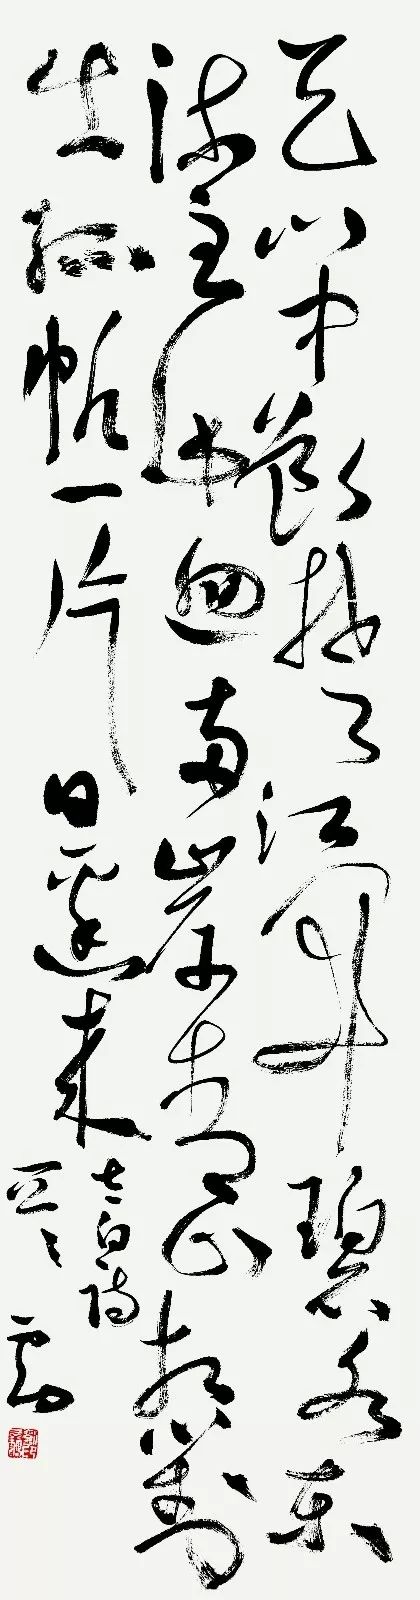 天门中断楚江开碧水东
流至此回两岸青山相对
出孤帆一片日边来
白诗